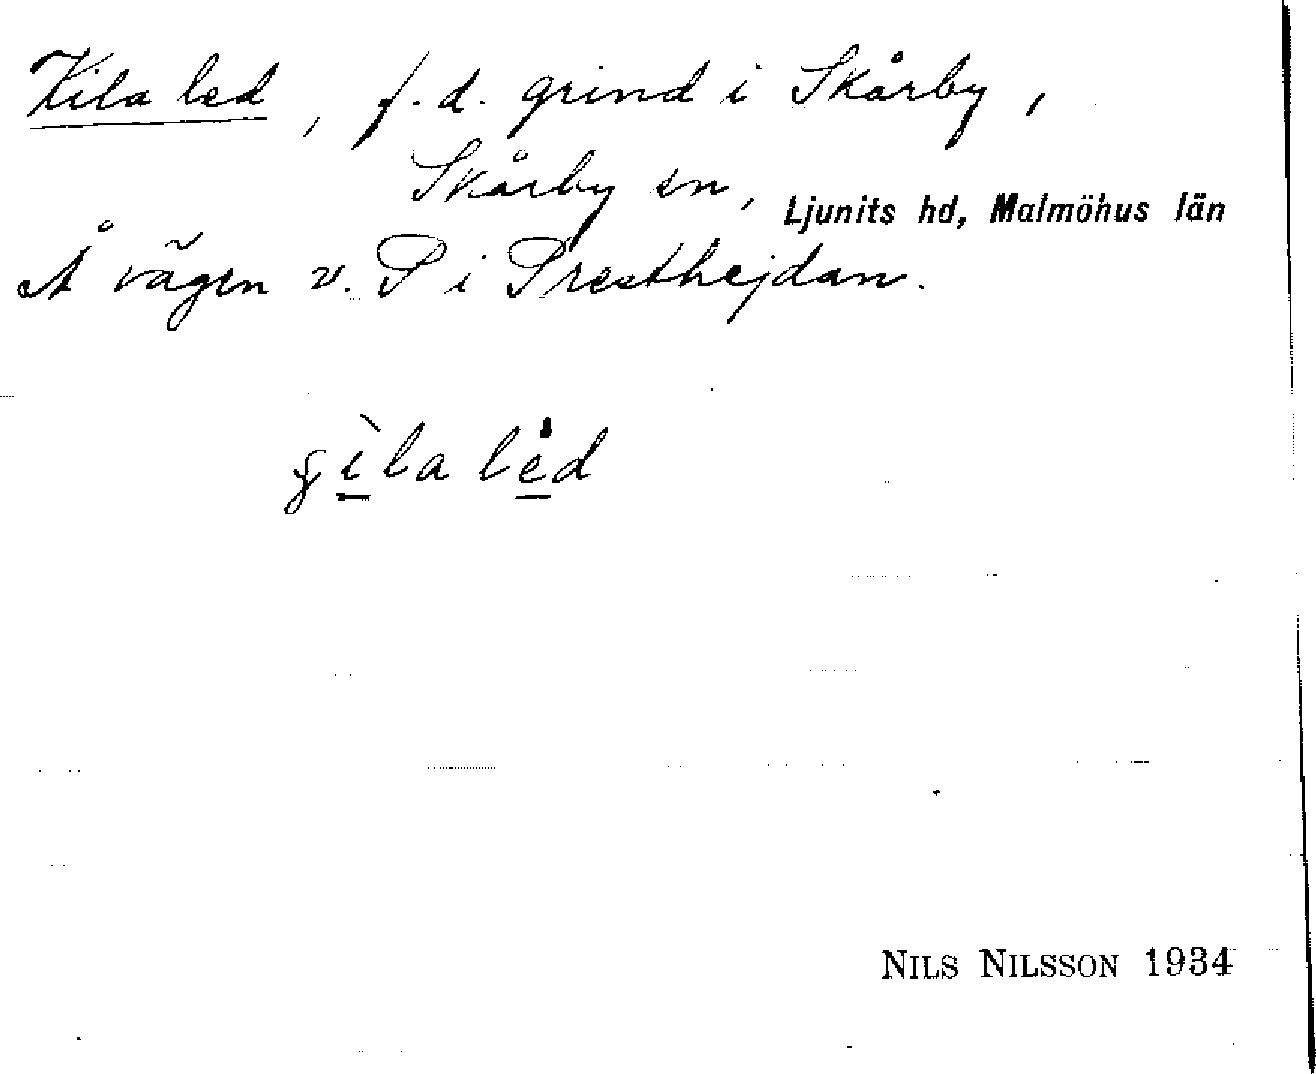 Kila led, f. d. grind i Skårby,
Skårby sn, Ljunits hd, Malmöhus län
Å vägen v. P i Presthejdan.
ɕìla léd
NILS NILSSON 1934